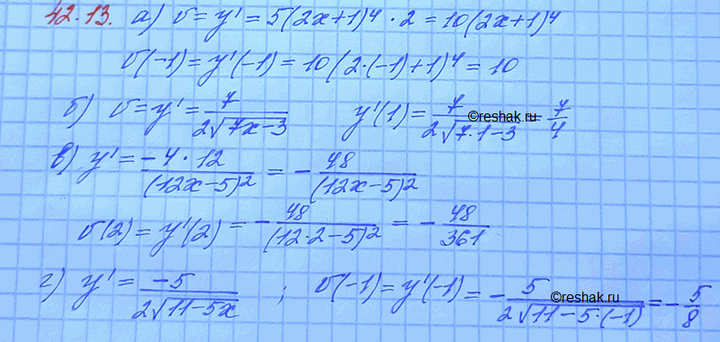 42.13. а) υ = y' = 5(2x+1)⁴ · 2 = 10(2x+1)⁴
υ(-1) = y'(-1) = 10(2·(-1)+1)⁴ = 10
б) υ = y' = 7/(2√(7x-3)) y'(1) = 7/(2√(7·1-3)) = 7/4
©reshak.ru
в) y' = (-4·12)/(12x-5)² = -48/(12x-5)²
υ(2) = y'(2) = -48/(12·2-5)² = -48/361
г) y' = -5/(2√(11-5x)) ; υ(-1) = y'(-1) = -5/(2√(11-5·(-1))) = -5/8
©reshak.ru